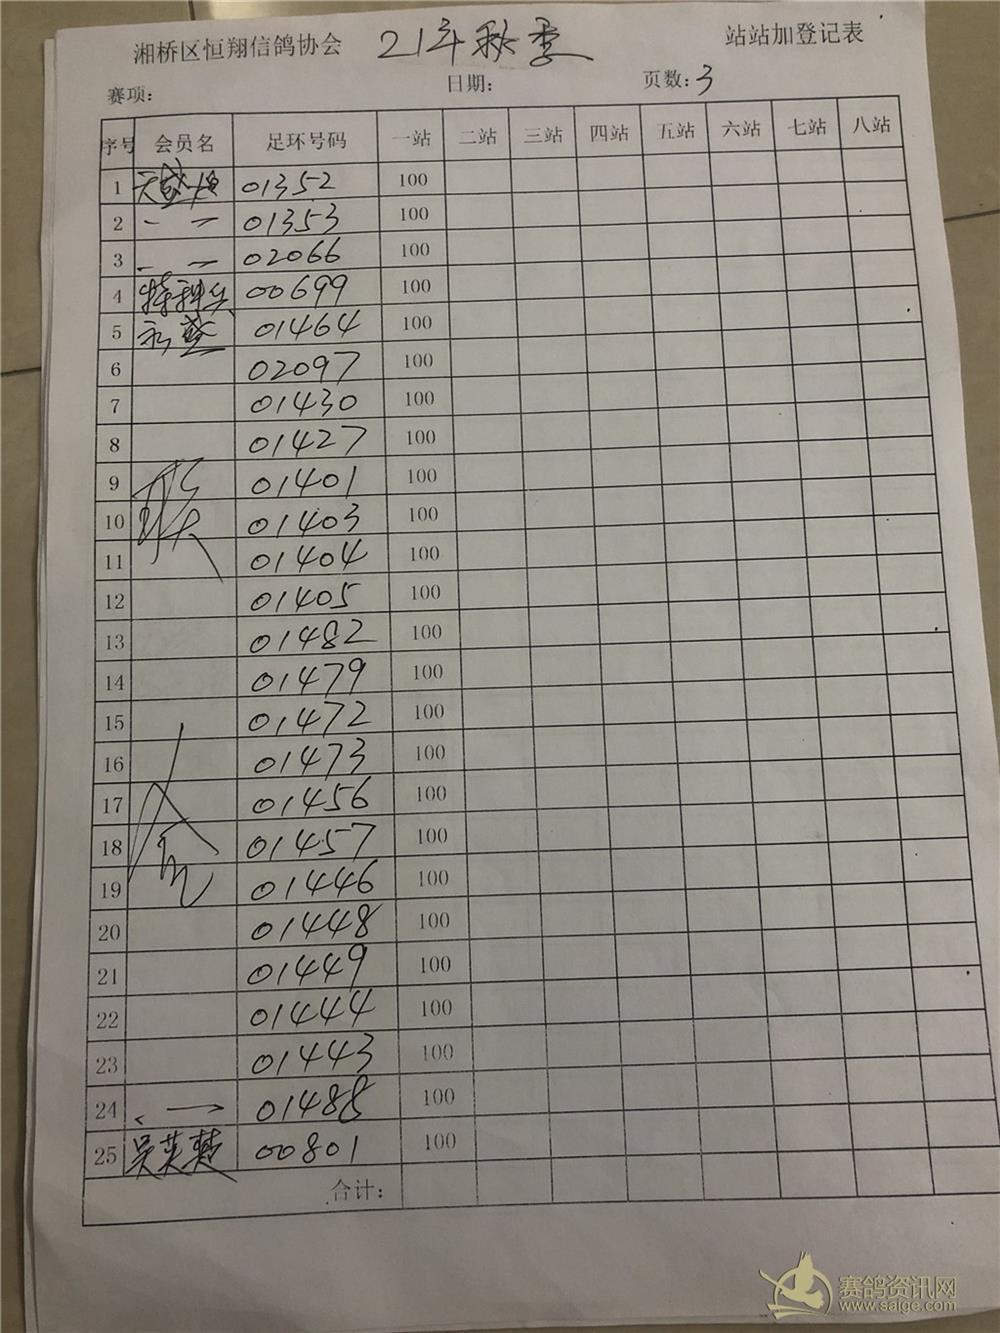 湘桥区恒翔信鸽协会 21年秋季 站站加登记表
赛项: 日期: 页数: 3
序号 会员名 足环号码 一站 二站 三站 四站 五站 六站 七站 八站
1 01352 100
2 01353 100
3 02066 100
4 00699 100
5 01464 100
6 02097 100
7 01430 100
8 01427 100
9 01401 100
10 01403 100
11 01404 100
12 01405 100
13 01482 100
14 01479 100
15 01472 100
16 01473 100
17 01456 100
18 01457 100
19 01446 100
20 01448 100
21 01449 100
22 01444 100
23 01443 100
24 01488 100
25 00801 100
合计:
赛鸽资讯网
www.saige.com